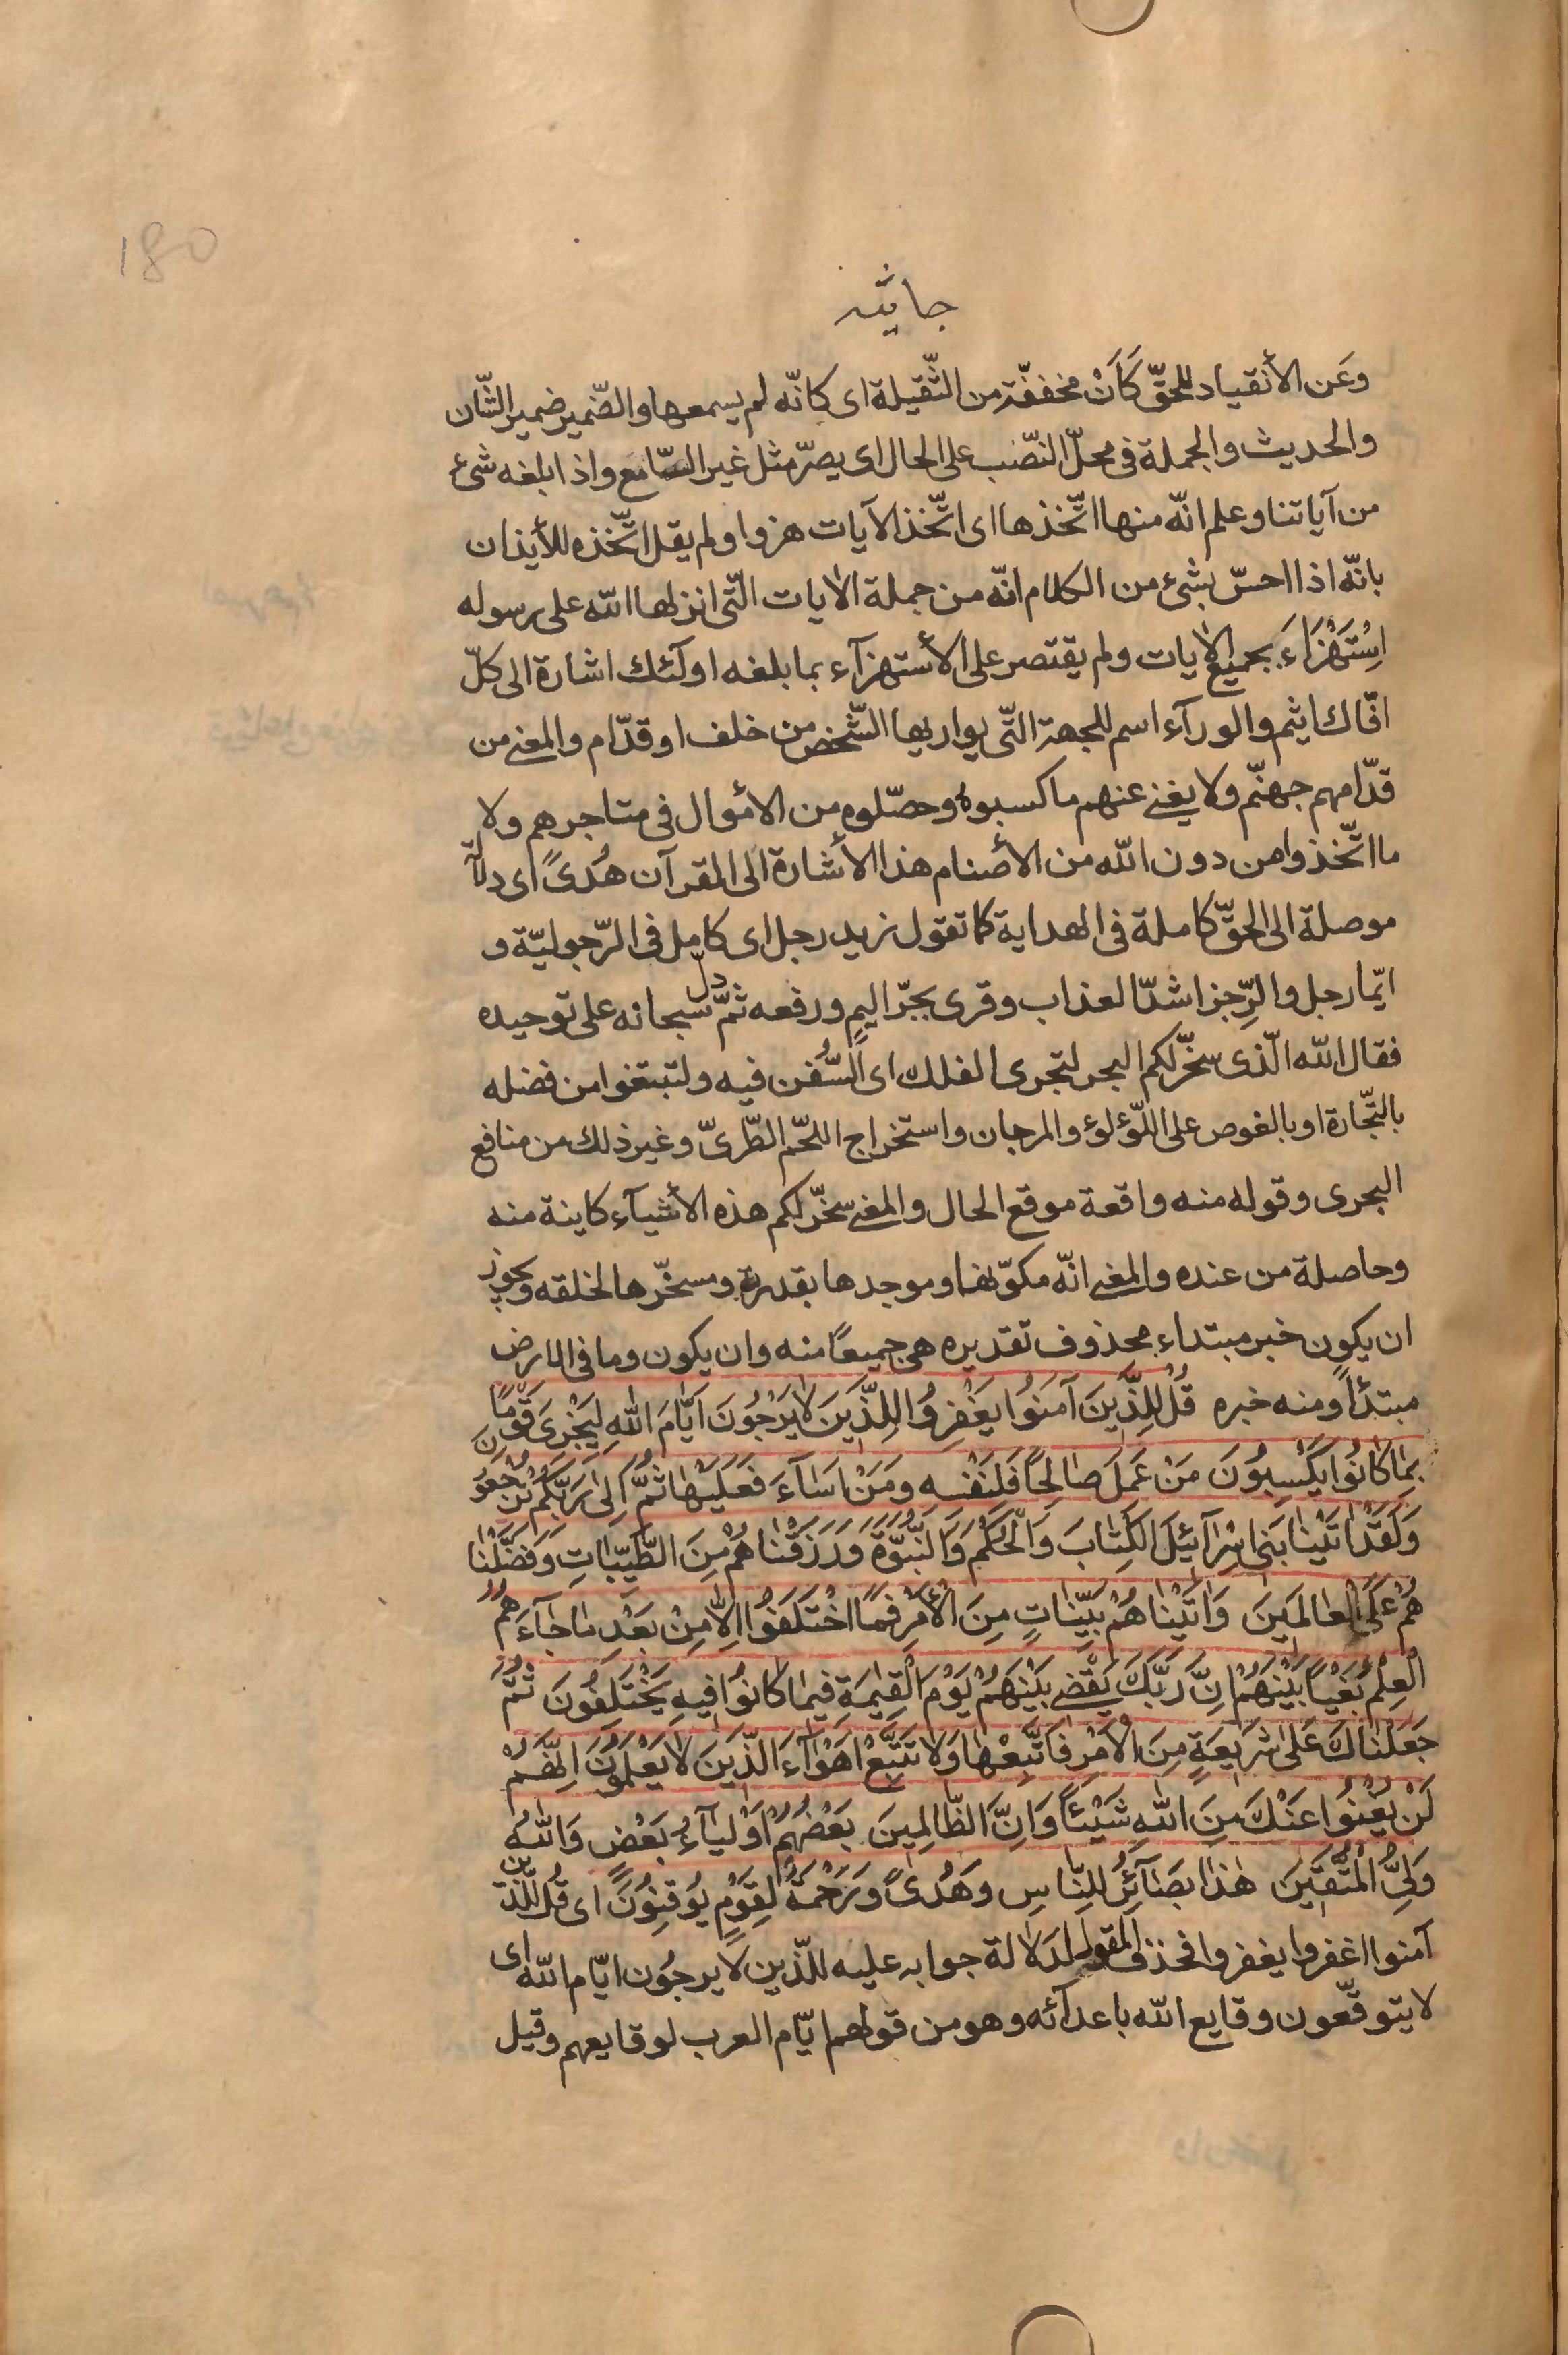 180
جاثيه
وعَن الأنقياد للحقّ كَاَنْ مخففّة من الثّقيلة اى كانّه لم يسمعها والضّمير ضمير الشّان
والحديث والجملة فى محلّ النصّب على الحال اى يصرّ مثل غير السّامع واذا بلغه شئ
من آياتنا وعلم انّه منها اتّخذها اى اتّخذ الآيات هزوا ولم يقل اتّخذه للأيذان
بانّه اذا احسّ بشئ من الكلام انّه من جملة الآيات الّتى انزلها الله على رسوله
اِسْتَهْزَاءَ بجميع الآيات ولم يقتصر على الأستهزآء بما بلغه اولٓئك اشارة الى كلّ
افّاك اثيم والورآء اسم للجهة التّى يواريها الشّخص من خلف او قدّام والمعنى من
قدّامهم جهنّم ولا يغنى عنهم ما كسبوه وحصّلوه من الأموال فى متاجرهم ولا
ما اتّخذوا من دون الله من الأصنام هذا الأشارة الى القرآن هُدىً اى دلالة
موصلة الى الحقّ كاملة فى الهداية كما تقول زيد رجل اى كامل فى الرّجوليّة و
ايّما رجل والرِّجز اشدّ العذاب وقرى بجرّ اليم ورفعه ثمّ دلّ سبحانه على توحيده
فقال الله الّذى سخّر لكم البحر لتجرى الفلك اى السُّفن فيه ولتبتغوا من فضله
بالتّجارة او بالغوص على اللّؤلؤ والمرجان واستخراج اللحّم الطّرىّ وغير ذلك من منافع
البحرى وقوله منه واقعة موقع الحال والمعنى سخّر لكم هذه الأشيآء كاينة منه
وحاصلة من عنده والمعنى انّه مكوّنها وموجدها بقدرته ومسخّرها لخلقه ويجوز
ان يكون خبر مبتداء محذوف تقديره هى جميعًا منه وان يكون وما فى الارض
مبتدًأ ومنه خبره قُلْ لِلَّذِينَ آمَنُوا يَغْفِرُوا لِلَّذِينَ لا يَرْجُونَ اَيّامَ اللهِ لِيَجْزِىَ قَوْمًا
بِمٰا كٰانُوا يَكْسِبُونَ مَنْ عَمِلَ صٰالِحًا فَلِنَفْسِهِ وَمَنْ اَسٰآءَ فَعَلَيْهٰا ثُمَّ اِلٰى رَبِّكُمْ تُرْجَعُونَ
وَلَقَدْ اٰتَيْنٰا بَنِى اِسْرٰآئِيلَ الْكِتٰابَ وَالْحُكْمَ وَالنُّبُوَّةَ وَرَزَقْنٰاهُمْ مِنَ الطَّيِّبٰاتِ وَفَضَّلْنٰا
هُمْ عَلَى الْعٰالَمِينَ وَاٰتَيْنٰاهُمْ بَيِّنٰاتٍ مِنَ الْأَمْرِ فَمَا اخْتَلَفُوا اِلّٰا مِنْ بَعْدِ مٰا جٰآءَهُمُ
الْعِلْمُ بَغْيًا بَيْنَهُمْ اِنَّ رَبَّكَ يَقْضِى بَيْنَهُمْ يَوْمَ الْقِيٰمَةِ فِيمٰا كٰانُوا فِيهِ يَخْتَلِفُونَ ثُمَّ
جَعَلْنٰاكَ عَلىٰ شَرِيعَةٍ مِنَ الْاَمْرِ فَاتَّبِعْهٰا وَلا تَتَّبِعْ اَهْوٰآءَ الَّذِينَ لا يَعْلَمُونَ اِنَّهُمْ
لَنْ يُغْنُوا عَنْكَ مِنَ اللهِ شَيْئًا وَاِنَّ الظّٰالِمِينَ بَعْضُهُمْ اَوْلِيٰآءُ بَعْضٍ وَاللهُ
وَلِىُّ الْمُتَّقِينَ هٰذٰا بَصٰآئِرُ لِلنّٰاسِ وَهُدىً وَرَحْمَةٌ لِقَوْمٍ يُوقِنُونَ اى قُل للّذين
آمنوا اغفروا يغفروا فحذف المقول لدلالة جوابه عليه للّذين لا يرجُون ايّام الله اى
لا يتوقّعون وقايع الله باعدآئه وهو من قولهم ايّام العرب لوقايعهم وقيل